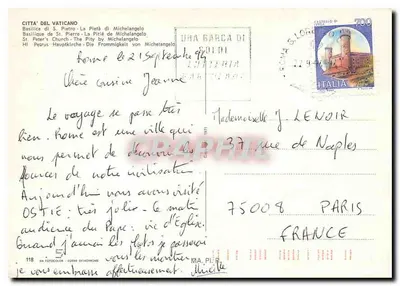 CITTA' DEL VATICANO
Basilica di S. Pietro - La Pietà di Michelangelo
Basilique de St. Pierre - La Pitié de Michelangelo
St. Peter's Church - The Pity by Michelangelo
Hl Petrus Hauptkirche - Die Frommigkeit von Michelangelo
UNA BARCA DI
SOLDI
LOTTERIA
700
ITALIA
Rome le 21 Septembre 94
Chère cousine Jeanne
Le voyage se passe très
bien. Rome est une ville qui
nous permet de découvrir les
sources de notre civilisation
Aujourd'hui nous avons visité
OSTIE: très jolie. Le matin
audience du Pape: vie d'Eglise.
Quand j'aurai les photos je passerai
vous les montrer
je vous embrasse affectueusement. Mireille
Mademoiselle J LENOIR
37 rue de Naples
75008 PARIS
FRANCE
118
MA.PI.R.